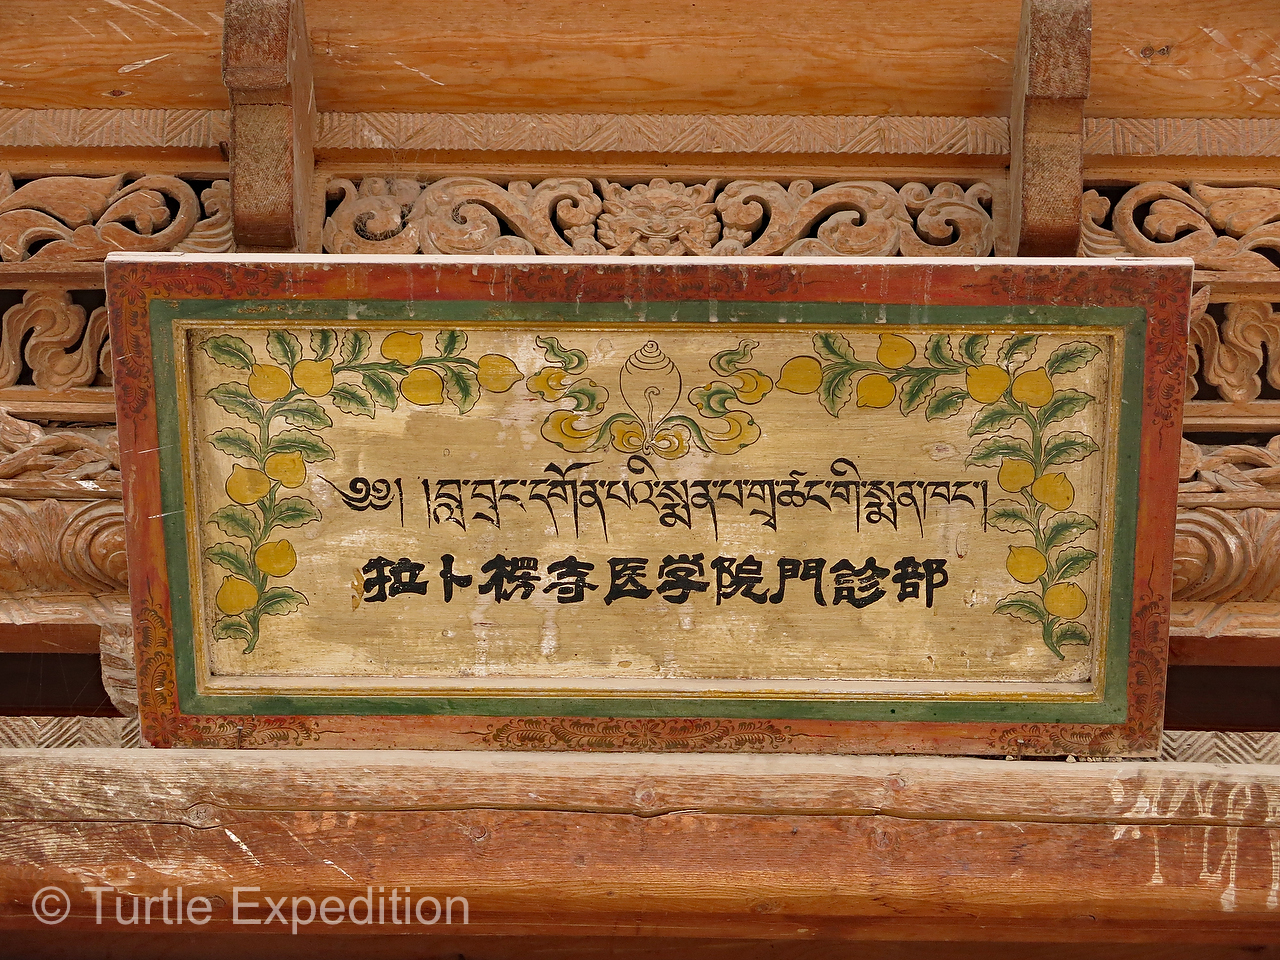 ༄༅། །བླ་བྲང་དགོན་པའི་སྨན་པ་གྲྭ་ཚང་གི་སྨན་ཁང་།
拉卜楞寺医学院門診部
© Turtle Expedition